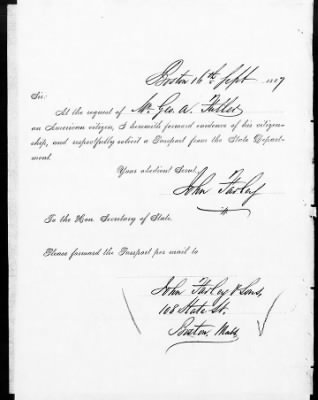 Boston 16th Sept. 1887
Sir:
At the request of Mr. Geo. A. Fuller
an American citizen, I herewith forward evidence of his citizen-
ship, and respectfully solicit a Passport from the State Depart-
ment.
Your obedient Servt.,
John Farley
To the Hon. Secretary of State.
Please forward the Passport per mail to
John Farley & Sons,
108 State St.
Boston, Mass